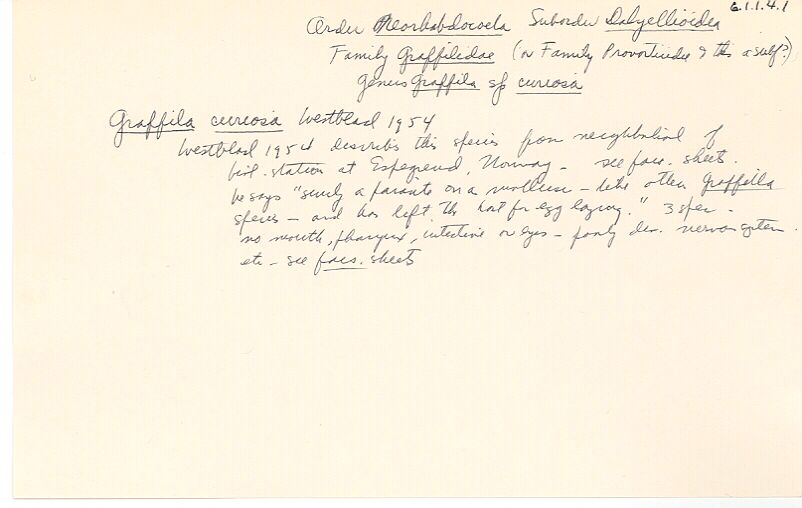 6.1.1.4.1
Order Neorhabdocoela Suborder Dalyellioidea
Family Graffilidae (or Family Provorticidae & this a subf?)
genus Graffila sp curiosa
Graffila curiosa Westblad 1954
Westblad 1954 describes this species from neighborhood of
biol. station at Espegrend, Norway - see facs. sheets.
he says "surely a parasite on a mollusc - like other Graffilla
species - and has left the host for egg laying." 3 spec -
no mouth, pharynx, intestine or eyes - poorly dev. nervous system.
etc - see facs. sheets